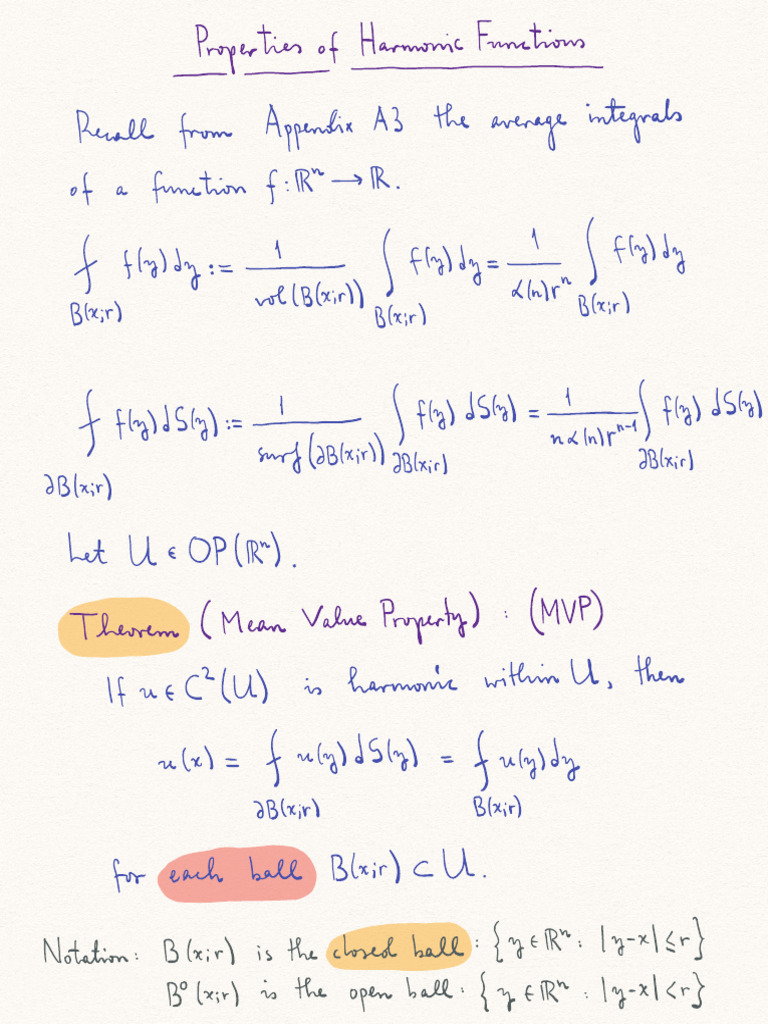 Properties of Harmonic Functions
Recall from Appendix A3 the average integrals
of a function f: ℝⁿ → ℝ.
⨍_{B(x;r)} f(y)dy := 1/vol(B(x;r)) ∫_{B(x;r)} f(y)dy = 1/(α(n)rⁿ) ∫_{B(x;r)} f(y)dy
⨍_{∂B(x;r)} f(y)dS(y) := 1/surf(∂B(x;r)) ∫_{∂B(x;r)} f(y)dS(y) = 1/(nα(n)rⁿ⁻¹) ∫_{∂B(x;r)} f(y)dS(y)
Let U ∈ OP(ℝⁿ).
Theorem (Mean Value Property) : (MVP)
If u ∈ C²(U) is harmonic within U, then
u(x) = ⨍_{∂B(x;r)} u(y)dS(y) = ⨍_{B(x;r)} u(y)dy
for each ball B(x;r) ⊂ U.
Notation: B(x;r) is the closed ball: {y ∈ ℝⁿ : |y-x| ≤ r}
B°(x;r) is the open ball: {y ∈ ℝⁿ : |y-x| < r}